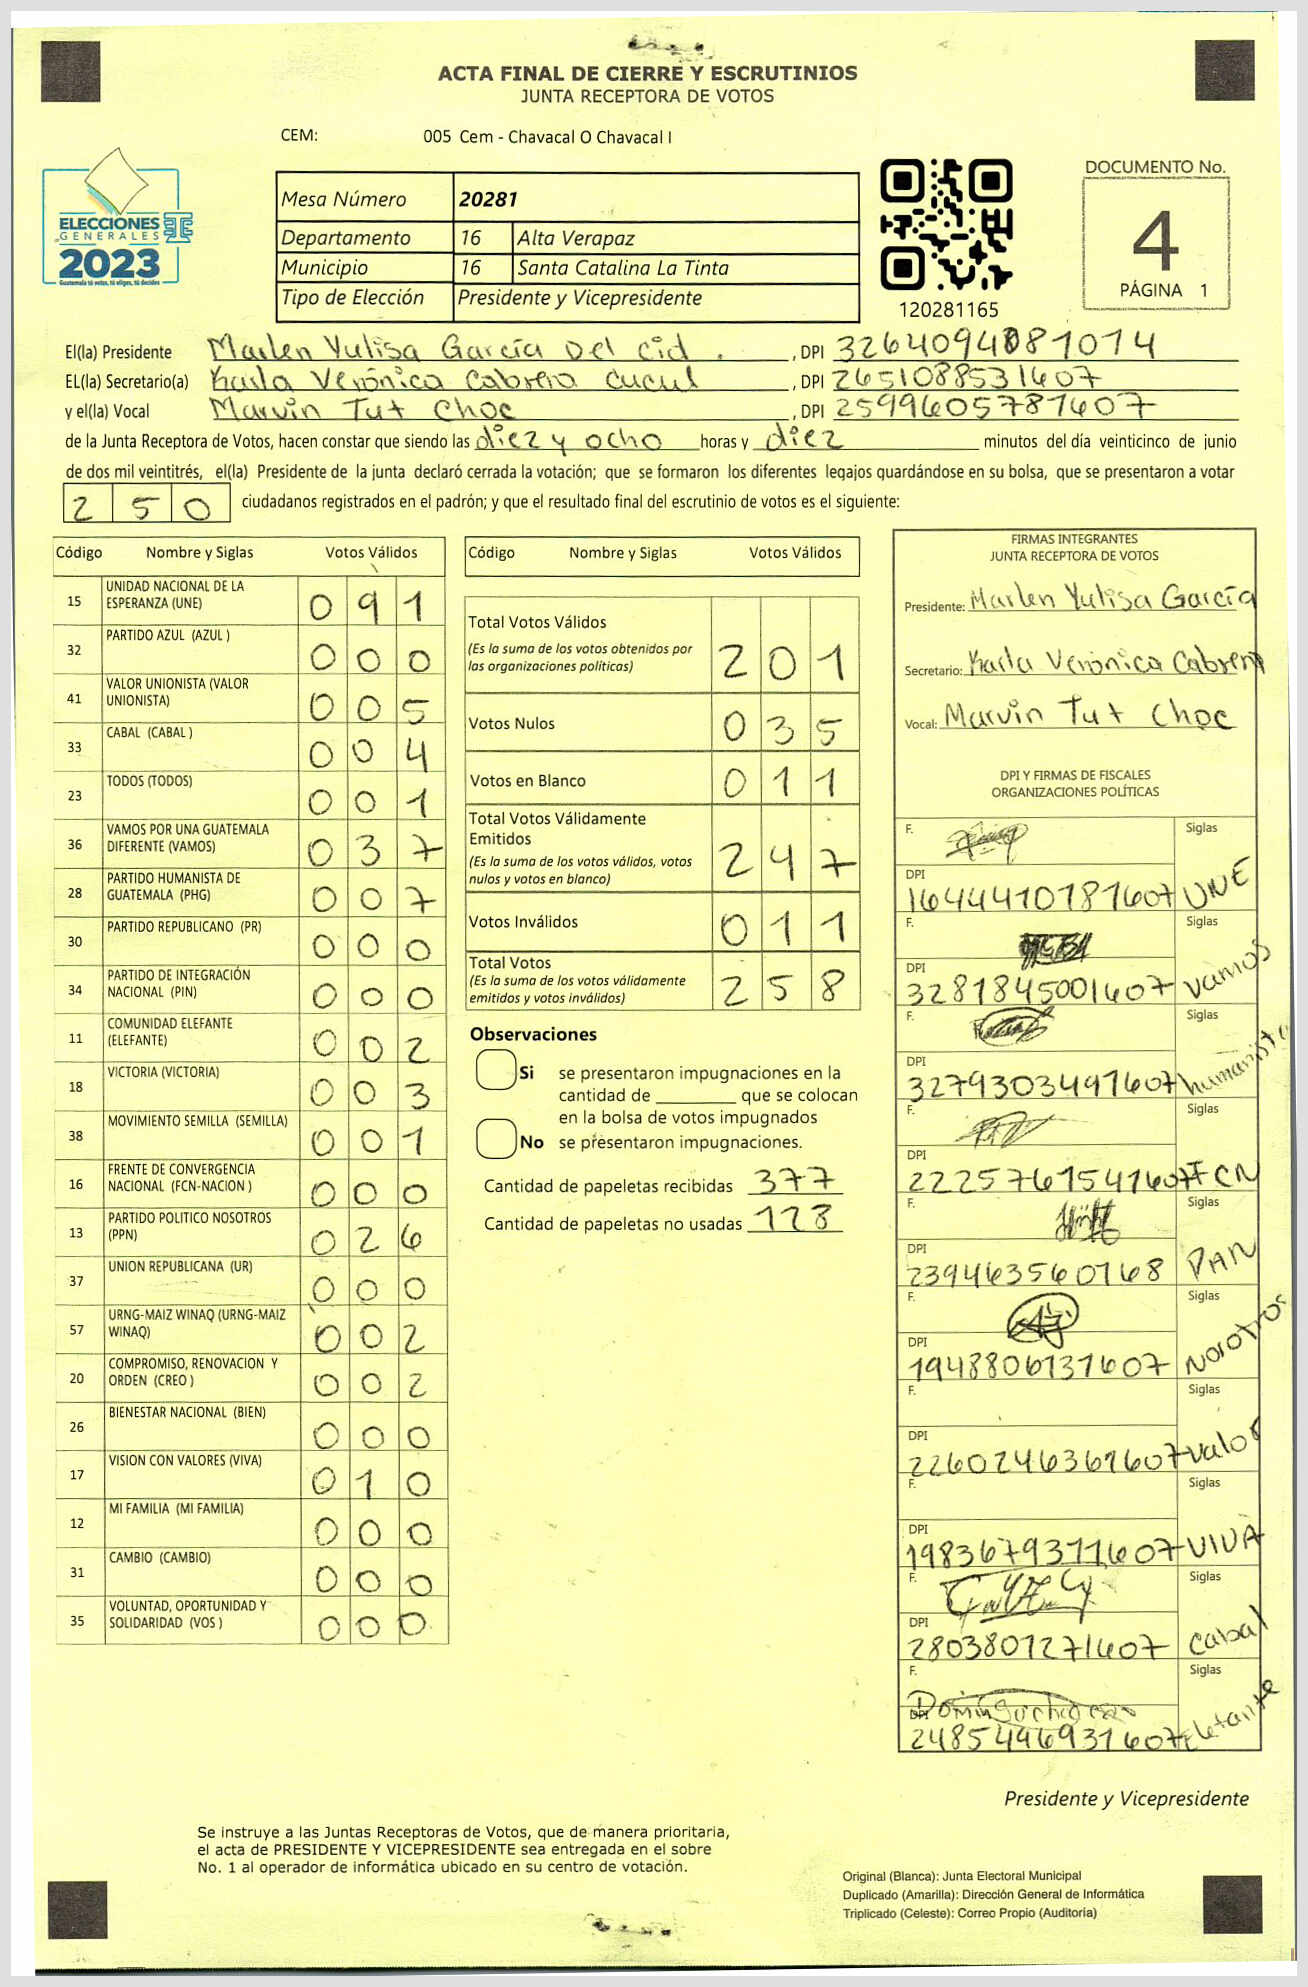 ACTA FINAL DE CIERRE Y ESCRUTINIOS
JUNTA RECEPTORA DE VOTOS
CEM: 005 Cem - Chavacal O Chavacal I
ELECCIONES
GENERALES
2023
Guatemala tú votas, tú eliges, tú decides
Mesa Número 20281
Departamento 16 Alta Verapaz
Municipio 16 Santa Catalina La Tinta
Tipo de Elección Presidente y Vicepresidente
120281165
DOCUMENTO No.
4
PÁGINA 1
El(la) Presidente Marlen Yulisa García Del Cid . , DPI 3264094081014
EL(la) Secretario(a) Karla Verónica Cabrera Cucul , DPI 2651088531607
y el(la) Vocal Marvin Tut Choc , DPI 2599605781607
de la Junta Receptora de Votos, hacen constar que siendo las diez y ocho horas y diez minutos del día veinticinco de junio
de dos mil veintitrés, el(la) Presidente de la junta declaró cerrada la votación; que se formaron los diferentes legajos quardándose en su bolsa, que se presentaron a votar
250 ciudadanos registrados en el padrón; y que el resultado final del escrutinio de votos es el siguiente:
Código Nombre y Siglas Votos Válidos
15 UNIDAD NACIONAL DE LA ESPERANZA (UNE) 091
32 PARTIDO AZUL (AZUL ) 000
41 VALOR UNIONISTA (VALOR UNIONISTA) 005
33 CABAL (CABAL ) 004
23 TODOS (TODOS) 001
36 VAMOS POR UNA GUATEMALA DIFERENTE (VAMOS) 037
28 PARTIDO HUMANISTA DE GUATEMALA (PHG) 007
30 PARTIDO REPUBLICANO (PR) 000
34 PARTIDO DE INTEGRACIÓN NACIONAL (PIN) 000
11 COMUNIDAD ELEFANTE (ELEFANTE) 002
18 VICTORIA (VICTORIA) 003
38 MOVIMIENTO SEMILLA (SEMILLA) 001
16 FRENTE DE CONVERGENCIA NACIONAL (FCN-NACION ) 000
13 PARTIDO POLITICO NOSOTROS (PPN) 026
37 UNION REPUBLICANA (UR) 000
57 URNG-MAIZ WINAQ (URNG-MAIZ WINAQ) 002
20 COMPROMISO, RENOVACION Y ORDEN (CREO ) 002
26 BIENESTAR NACIONAL (BIEN) 000
17 VISION CON VALORES (VIVA) 010
12 MI FAMILIA (MI FAMILIA) 000
31 CAMBIO (CAMBIO) 000
35 VOLUNTAD, OPORTUNIDAD Y SOLIDARIDAD (VOS ) 000
Código Nombre y Siglas Votos Válidos
Total Votos Válidos
(Es la suma de los votos obtenidos por
las organizaciones políticas) 201
Votos Nulos 035
Votos en Blanco 011
Total Votos Válidamente
Emitidos
(Es la suma de los votos válidos, votos
nulos y votos en blanco) 247
Votos Inválidos 011
Total Votos
(Es la suma de los votos válidamente
emitidos y votos inválidos) 258
Observaciones
Si se presentaron impugnaciones en la
cantidad de ________ que se colocan
en la bolsa de votos impugnados
No se presentaron impugnaciones.
Cantidad de papeletas recibidas 377
Cantidad de papeletas no usadas 128
FIRMAS INTEGRANTES
JUNTA RECEPTORA DE VOTOS
Presidente: Marlen Yulisa García
Secretario: Karla Verónica Cabrera
Vocal: Marvin Tut Choc
DPI Y FIRMAS DE FISCALES
ORGANIZACIONES POLÍTICAS
F. Siglas
DPI 1644410781607 UNE
F. Siglas
DPI 3281845001607 Vamos
F. Siglas
DPI 3279303491607 humanista
F. Siglas
DPI 2225761541607 FCN
F. Siglas
DPI 239463560168 PAN
F. Siglas
DPI 1948806131607 Nosotros
F. Siglas
DPI 2260246361607 Valor
F. Siglas
DPI 1983679371607 VIVA
F. Siglas
DPI 2803801271607 Cabal
F. Siglas
DPI 2485496931607 Elefante
Presidente y Vicepresidente
Se instruye a las Juntas Receptoras de Votos, que de manera prioritaria,
el acta de PRESIDENTE Y VICEPRESIDENTE sea entregada en el sobre
No. 1 al operador de informática ubicado en su centro de votación.
Original (Blanca): Junta Electoral Municipal
Duplicado (Amarilla): Dirección General de Informática
Triplicado (Celeste): Correo Propio (Auditoria)